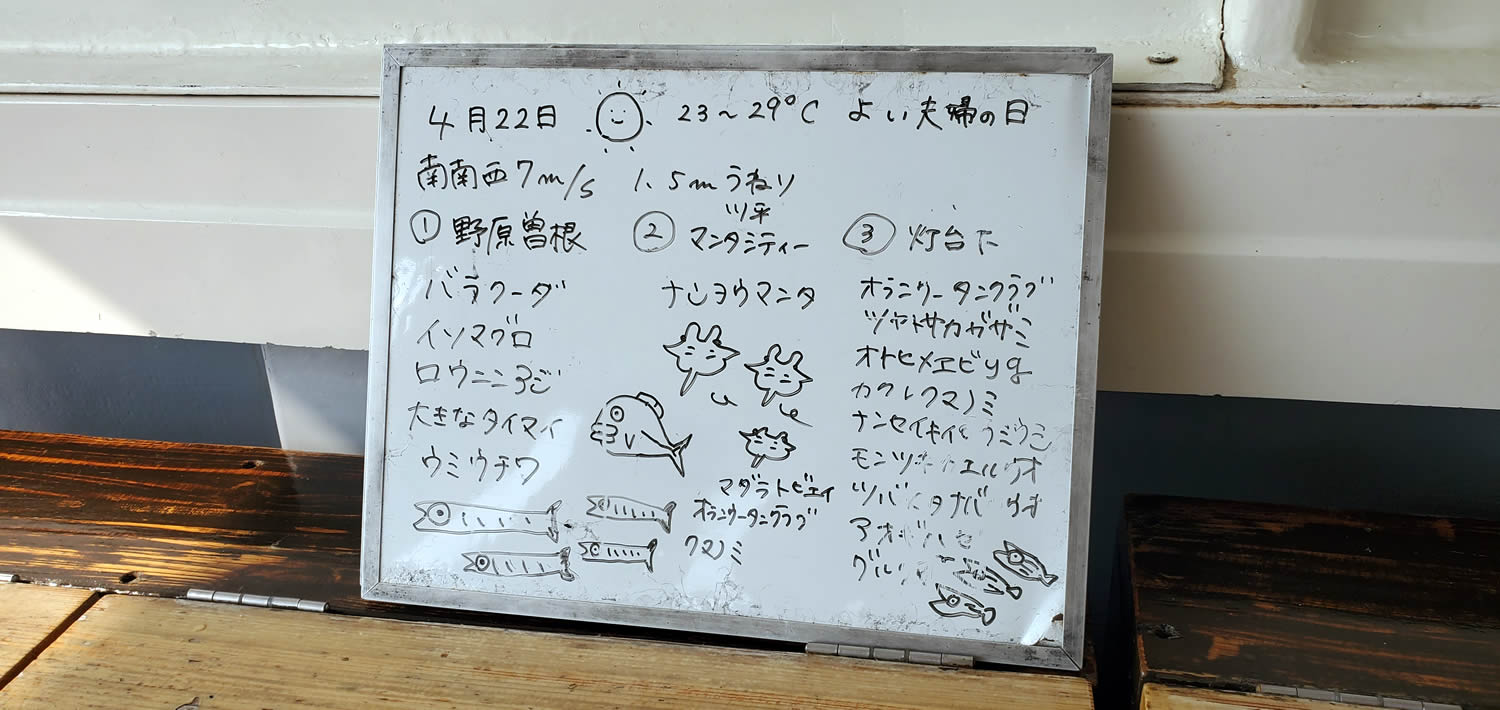 4月22日 23～29℃ よい夫婦の日
南南西7m/s 1.5mうねり
① 野原曽根
バラクーダ
イソマグロ
ロウニンアジ
大きなタイマイ
ウミウチワ
ツ平
② マンタシティー
ナンヨウマンタ
マダラトビエイ
オランウータンクラブ
クマノミ
③ 灯台下
オランウータンクラブ
ツヤトサカガザミ
オトヒメエビyg
カクレクマノミ
ナンセイキイロウミウシ
モンツキカエルウオ
アオギハゼ